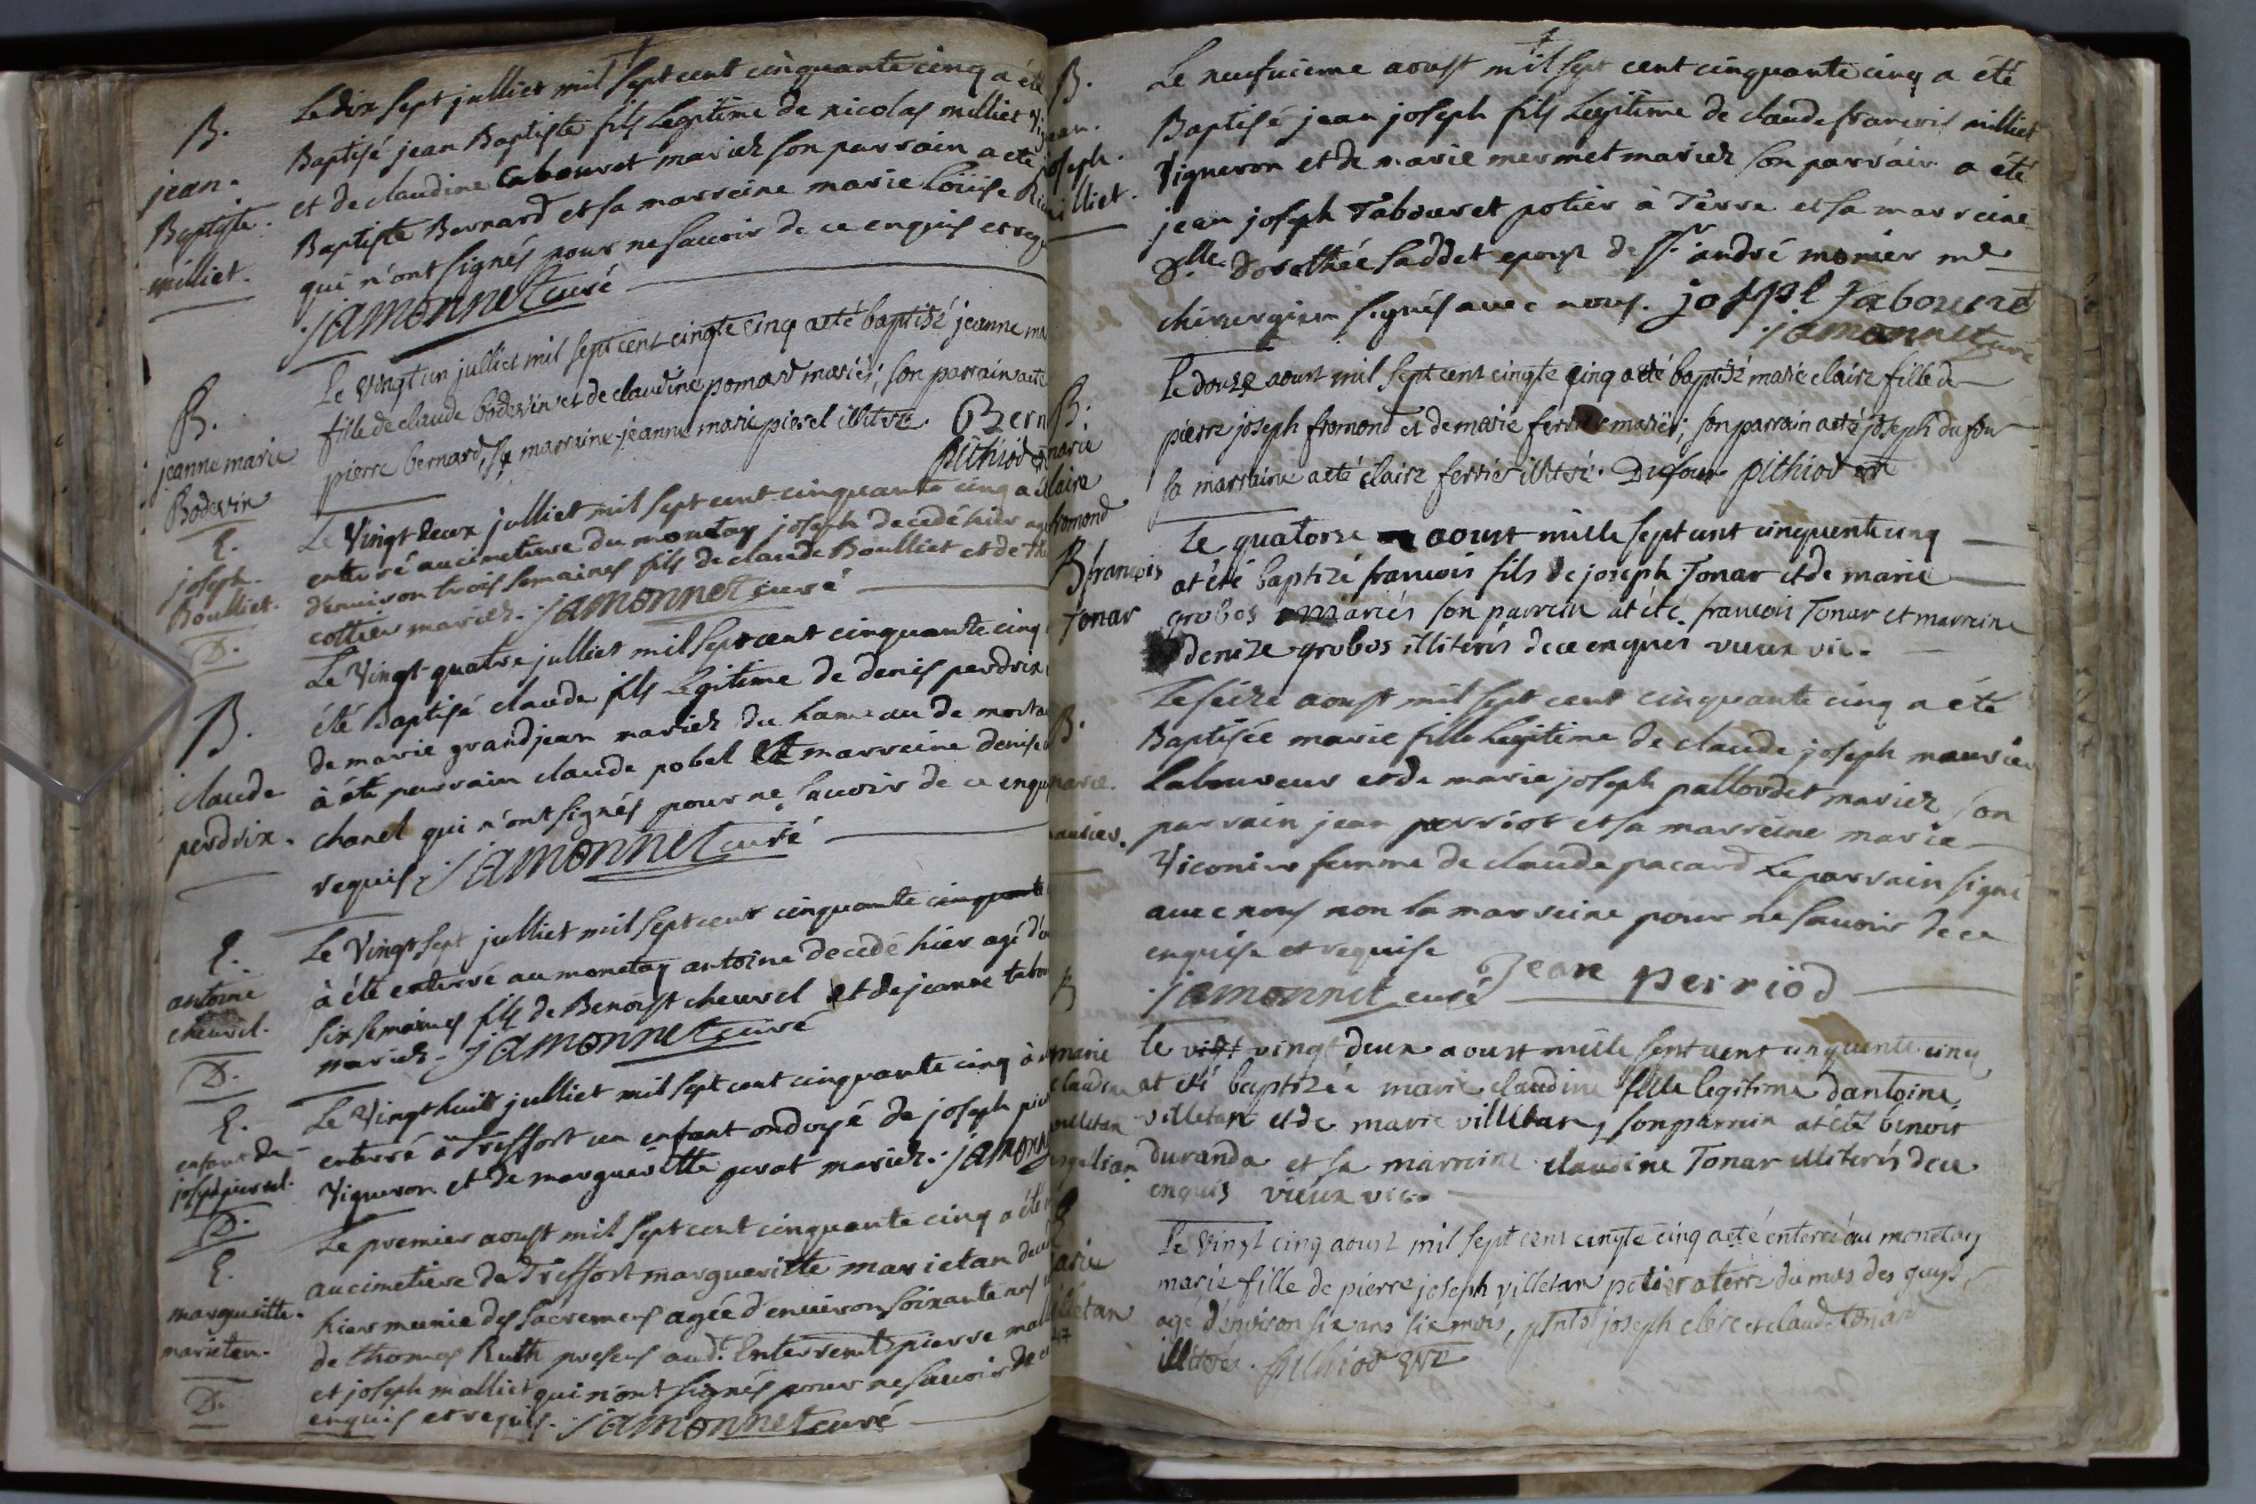 B.
jean.
Baptiste.
milliet.
Le dix sept julliet mil sept cent cinquante cinq a été
Baptisé jean Baptiste fils Legitime de nicolas milliet
et de claudine tabouret mariez son parrain a eté
Baptiste Bernard et sa marreine marie Loüise
qui n'ont signés pour ne sauoir de ce enquis et
jamonnet curé
B.
jeanne marie
Bodevin
Le vingt un julliet mil sept cent cinqte cinq a eté baptizé jeanne
fille de claude bodevin et de claudine pomard mariés; son parrain a eté
pierre bernard, sa marraine jeanne marie pierel illitré. Bern
pithiod
E.
joseph.
Boulliet.
D.
Le Vingt deux julliet mil sept cent cinquante cinq a
enterré au cimetiere du montay joseph decedé hier agé
d'enuiron trois semaines fils de claude Boulliet et de
cottier mariez. jamonnet curé
B.
claude
perdrix.
Le Vingt-quatre julliet mil sept cent cinquante cinq
été Baptisé claude fils Legitime de denis perdrix
de marie grandjean mariez du hameau de
à été parrain claude pobel et marreine denise
chanel qui n'ont signés pour ne sauoir de ce
requis. jamonnet curé
E.
antoine
cheurel.
D.
Le Vingt sept julliet mil sept cent cinquante cinquante
à été enterré au monetay antoine decedé hier agé
six semaines fils de Benoist cheurel et de jeanne
mariez. jamonnet curé
E.
enfant de
joseph pierrel.
D.
Le Vingt huit julliet mil sept cent cinquante cinq à
enterré à Treffort un enfant ondoyé de joseph
Vigneron et de margueritte gerat mariez. jamonn
E.
margueritte
marietan.
D.
Le premier aoust mil sept cent cinquante cinq a été
au cimetiere de Treffort margueritte marietan
hier munie des sacremens agée d'enuiron soixante ans
de thomas Ruth presens aud. Enterremt pierre
et joseph malliet qui n'ont signés pour ne sauoir de
enquis et requis. jamonnet curé
B.
jean.
joseph.
milliet.
Le neufuieme aoust mil sept cent cinquante cinq a été
Baptisé jean joseph fils Legitime de claude francois milliet
Vigneron et de marie mermet mariez son parrain a été
jean joseph Tabouret potier à Terre et sa marreine
Dlle Dorothée saddet epouse de Sr. andré monier me
chirurgien signés auec nous. joseph tabouret
jamonnet curé
B.
marie
claire
fromond
Le douze aoust mil sept cent cinqte cinq a eté baptizé marie claire fille de
pierre joseph fromond et de marie ferrier mariés; son parrain a eté joseph dufour
sa marraine a eté claire ferrier illitré. Dufour pithiod
B françois
Tonar
Le quatorze aoust mille sept cent cinquente cinq
at été baptizé francois fils de joseph Tonar et de marie
grobos mariés son parrein at été francois Tonar et marreine
denize grobos illiterés de ce enquis vieux vic.
B.
marie.
maurier.
Le seize aoust mil sept cent cinquante cinq a été
Baptisée marie fille Legitime de claude joseph maurier
Laboureur et de marie joseph pallordet mariez son
parrain jean perriot et sa marreine marie
Viconier femme de claude pacard Le parrain signé
auec nous non la marreine pour ne sauoir de ce
enquise et requise
jean perriod
jamonnet curé
B
marie
claudine
villetan
Le vingt deux aoust mille sept cent cinquente cinq
at été baptizée marie claudine fille legitime d'antoine
villetan et de marie villetan, son parrein at été benoit
duranda et sa marreine claudine Tonar illiterés de ce
enquis vieux vic.
E
marie
villetan
Le vingt cinq aoust mil sept cent cinqte cinq a eté enterré au monetay
marie fille de pierre joseph villetan potier a terre du mas des guys
agé d'environ six ans six mois, pnts joseph clerc et claude tonar
illitrés. pithiod